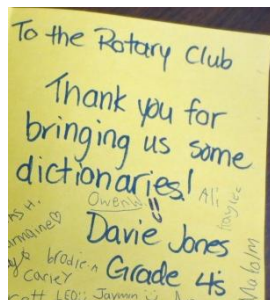 To the Rotary Club
Thank you for
bringing us some
dictionaries!
Owen
Ali
Davie Jones
Grade 4s
brodie
Carley
LEO
Jaymin